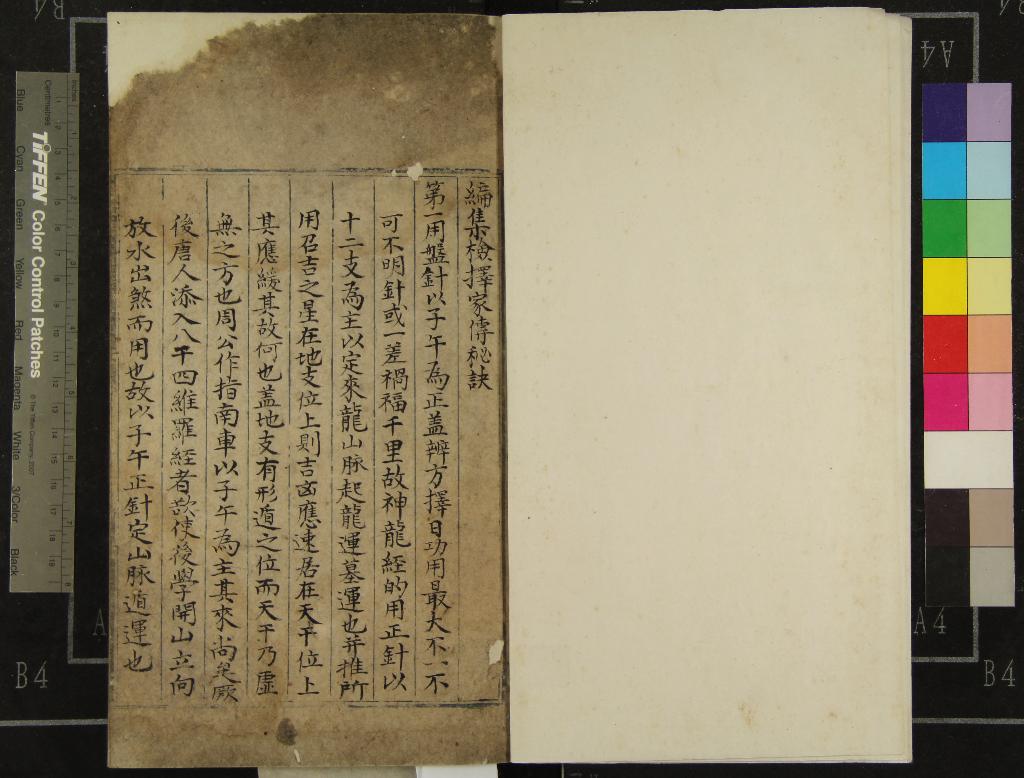 編集檢擇家傳秘訣
第一用盤針以子午為正盖辨方擇日功用最大不一不
可不明針或一差禍福千里故神龍經的用正針以
十二支為主以定來龍山脉起龍運墓運也并推所
用召吉之星在地支位上則吉凶應速居在天干位上
其應緩其故何也盖地支有形遁之位而天干乃虛
無之方也周公作指南車以子午為主其來尚矣厥
後唐人添入八干四維羅經者欲使後學開山立向
放水出煞而用也故以子午正針定山脉遁運也
TIFFEN Color Control Patches
© The Tiffen Company, 2007
Centimetres
Inches
Blue
Cyan
Green
Yellow
Red
Magenta
White
3/Color
Black
A4
A4
B4
B4